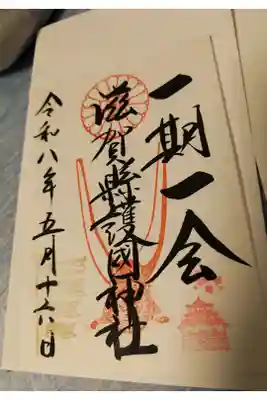 一期一会
滋賀縣護國神社
令和八年五月十六日